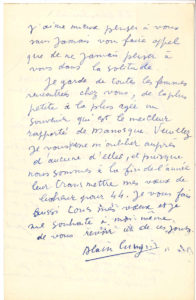 j'aime mieux penser à vous
sans jamais vous faire appel
que de ne jamais penser à
vous dans la solitude
Je garde de toutes les femmes
rencontrées chez vous, de la plus
petite à la plus agée un
souvenir qui est le meilleur
rapporté de Manosque. Veuillez
je vous prie m'oublier auprès
d'aucune d'elles, et puisque
nous sommes à la fin de l'année
leur transmettre mes vœux de
44. Je vous fais
aussi tous mes vœux et je
me souhaite à moi-même
de vous revoir de ces jours.
Alain